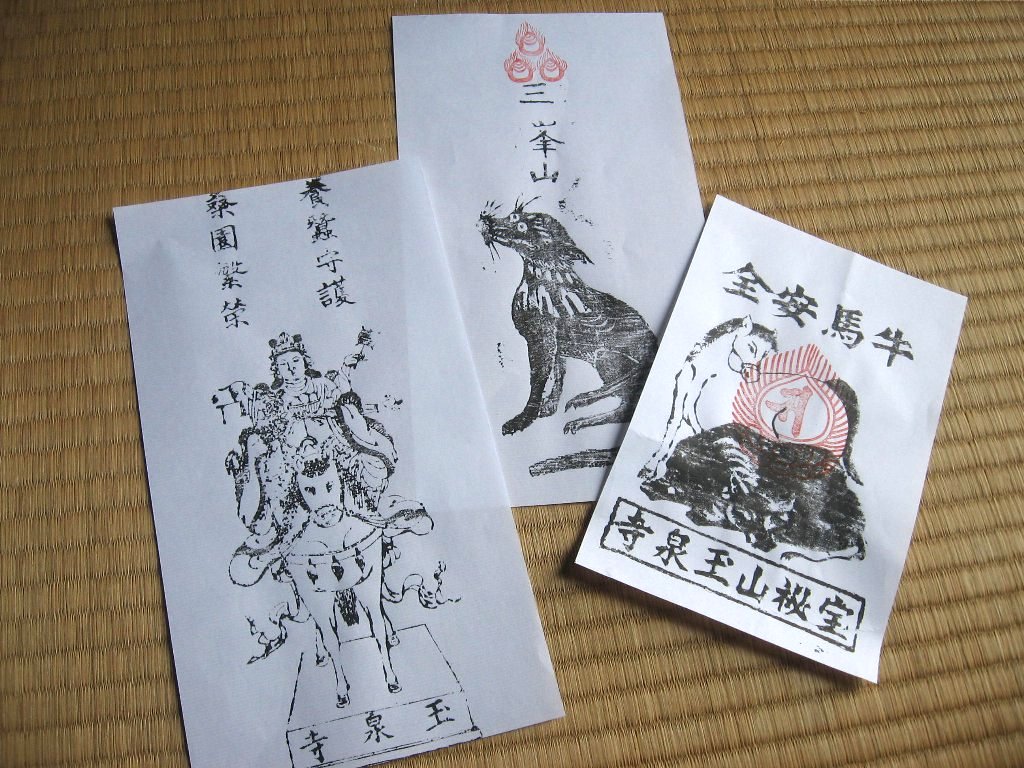 養蠶守護
桑園繁栄
玉泉寺
三峯山
牛馬安全
宝祕山玉泉寺